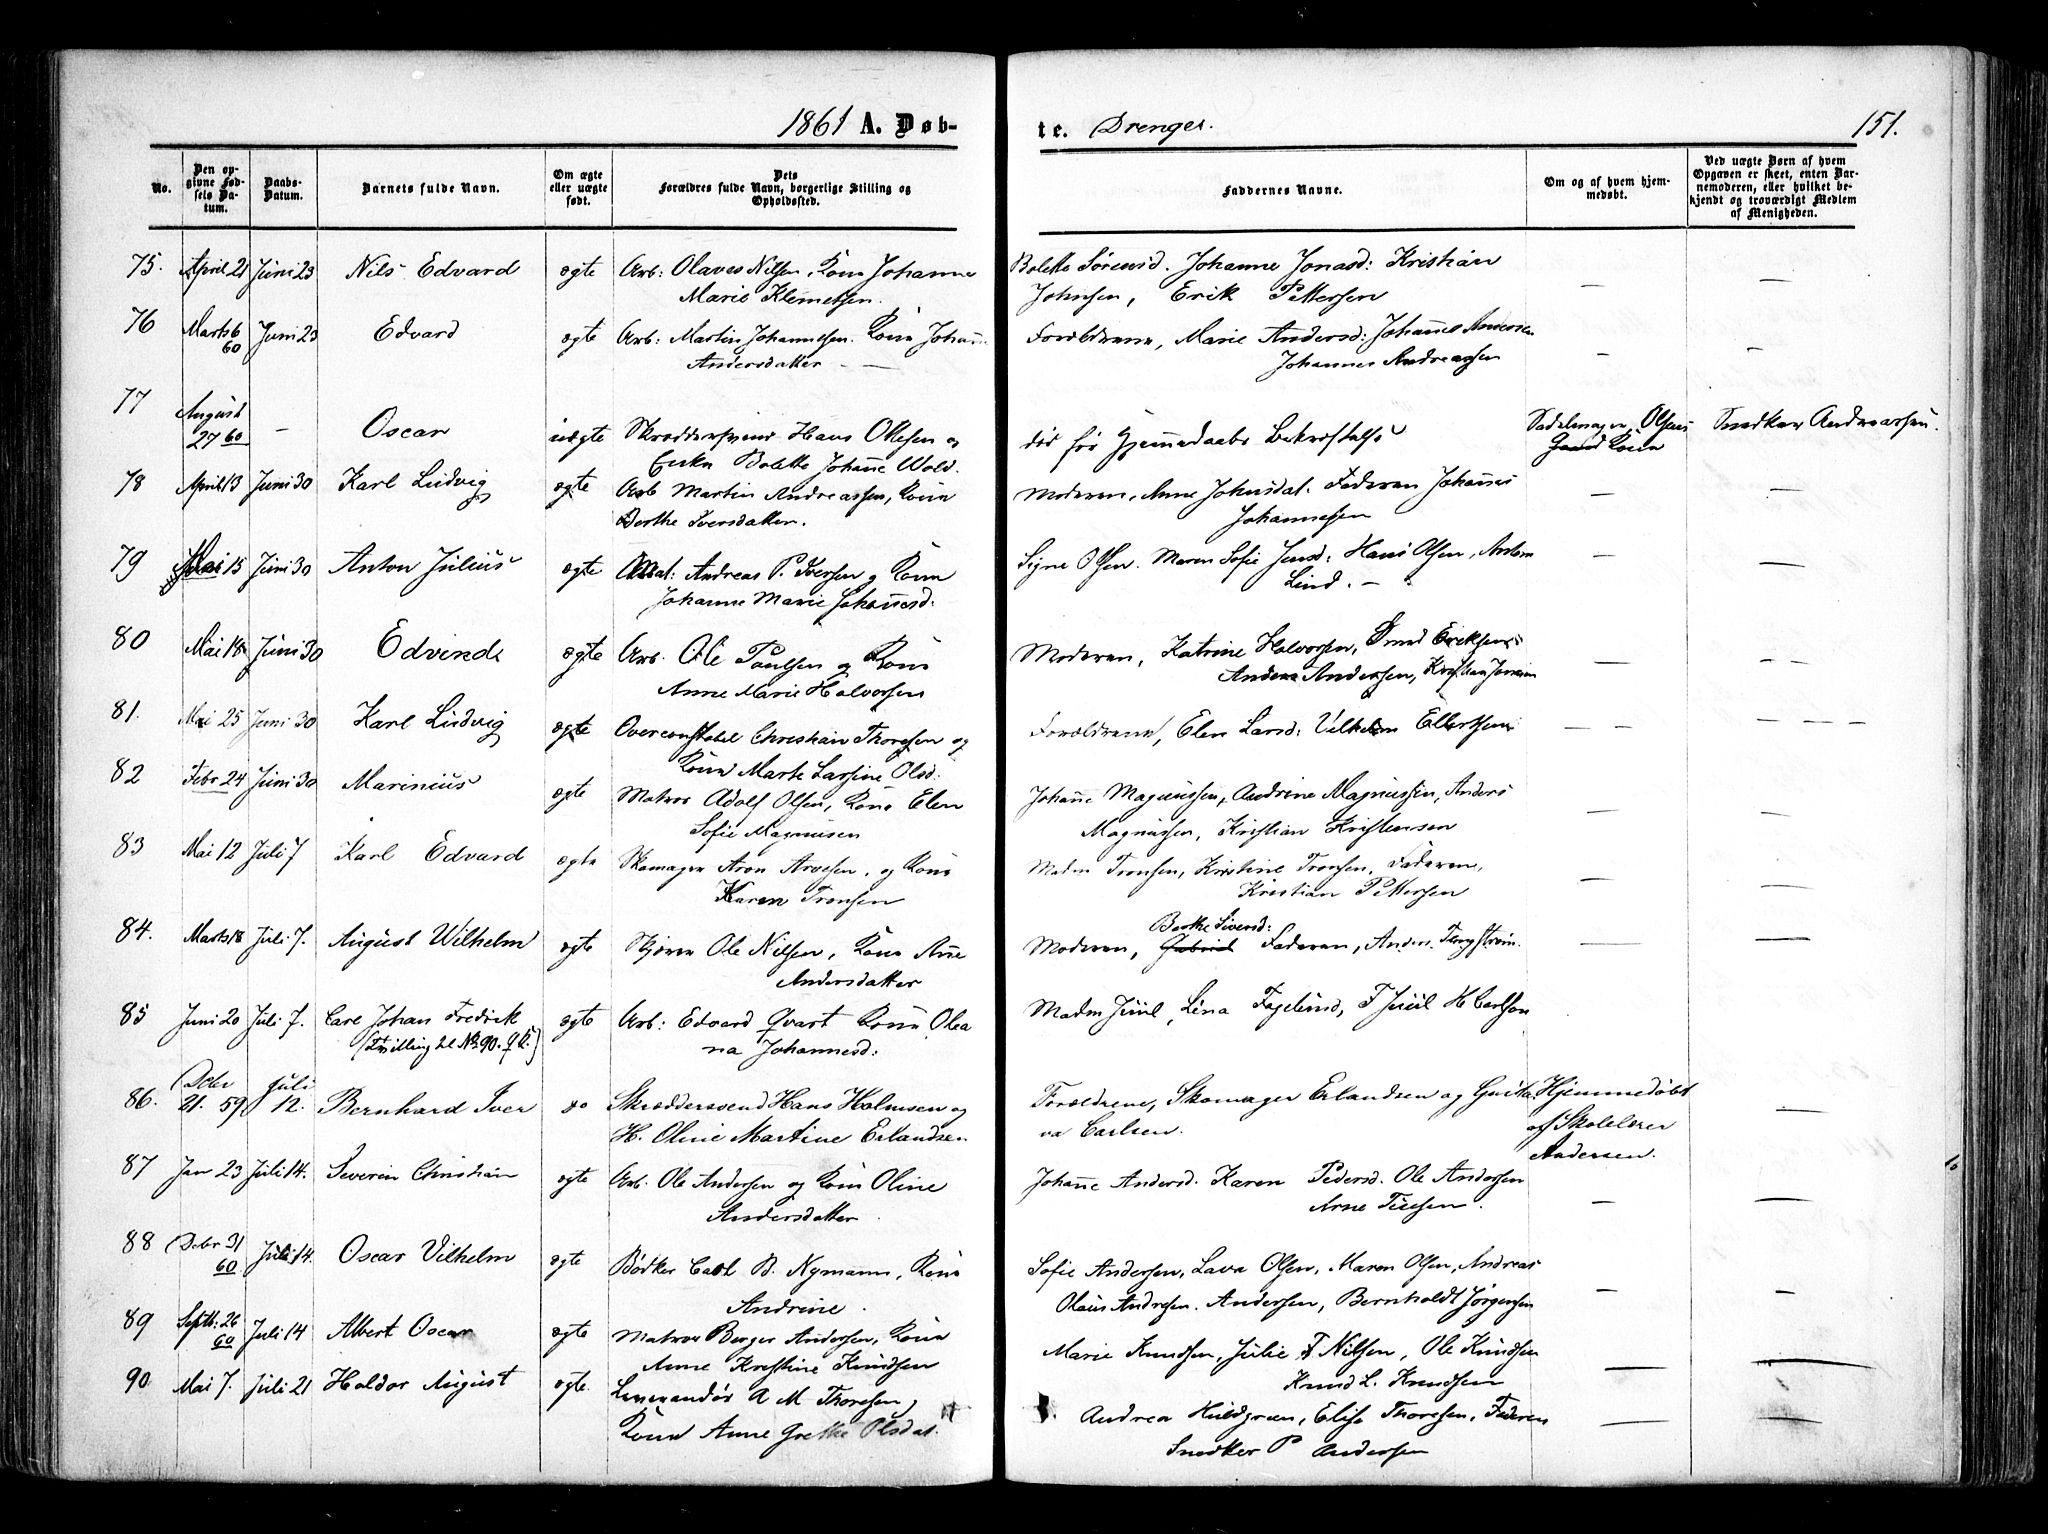 1861 A. Døb-
te. Drenger. 151.
No.
Den op-
givne Fød-
sels Da-
tum.
Daabs-
Datum.
Barnets fulde Navn.
Om ægte
eller uægte
født.
Dets
Forældres fulde Navn, borgerlige Stilling og
Opholdssted.
Faddernes Navne.
Om og af hvem hjem-
medøbt.
Ved uægte Børn af hvem
Opgaven er skeet, enten Bar-
nemoderen, eller hvilket be-
kjendt og troværdigt Medlem
af Menigheden.
75. April 21 Juni 23 Nils Edvard ægte Arb: Olaves Nilsen, Kone Johanne Bolette Sørensd. Johanne Jonasd: Kristian — —
Marie Klemetsen. Johnsen, Erik Pettersen
76 Marts 6 Juni 23 Edvard ægte Arb: Martin Johannesen. Kone Johane Forældrene, Marie Andersd: Johanes Andersen — —
60 Andersdatter — — Johannes Andreassen
77 August — Oscar uægte Skrædersvend Hans Olesen og død før Hjemmedaabs Bekræftelse Sadelmager Olsens Snedker Andreassen.
27 60 Enke Bolette Johane Wold. Kone
78 April 13 Juni 30 Karl Ludvig ægte Arb Martin Andreassen, Kone Moderen, Anne Johnsdat. Faderen Johanes — —
Berthe Iversdatter. Johannesen
79 Mai 15 Juni 30 Anton Julius ægte Mat: Andreas P. Iversen og Kone Signe Olsen. Maren Sofie Jensd: Hans Olsen, Anton — —
Johanne Marie Johanesd: Lind. —
80 Mai 18 Juni 30 Edvind ægte Arb. Ole Paulsen og Kone Moderen, Katrine Halvorsen, Knud Eriksen — — —
Anne Marie Halvorsen Anders Andersen, Kristian
81. Mai 25 Juni 30 Karl Ludvig ægte Overconstabel Christian Thoresen og Forældrene, Elen Larsd: Vilhelm Ellertsen — — — — —
Kone Marte Larsine Olsd:
82 Febr 24 Juni 30 Marinius ægte Matros Adolf Olsen, Kone Elen Johane Magnussen, Andrine Magnussen, Anders — —
Sofie Magnusen Magnussen, Kristian Kristensen
83 Mai 12 Juli 7 Karl Edvard ægte Skomager Aron Arvesen, og Kone Madm Tronsen, Kristine Tronsen, Faderen, — —
Karen Tronsen Kristian Pettersen
84. Marts 18 Juli 7. August Wilhelm ægte Ole Nilsen, Kone Ane Moderen, Berthe Siversd: Gabriel Faderen, Anders Tengstrøm. — —
Andersdatter
85 Juni 20 Juli 7. Carl Johan Fredrik ægte Arb: Edvard Qvart Kone Olea Madm Juul, Lena Fagelund, F Juul H Carlson
(Tvilling til No 90. Q K.) na Johannesd:
86. Dcbr 21. 59 Juli 12. Bernhard Iver Skræddersvend Hans Holmsen og Forældrene, Skomager Erlandsen og Gusta- Hjemmedøbt —
H. Oline Martine Erlandsen va Carlsen. af Skolelærer
Andersen.
87 Jan 23 Juli 14. Severin Christian ægte Arb. Ole Andersen og Kone Oline Johane Andersd. Karen Pedersd. Ole Andersen — —
Andersdatter. Arne
88 Dcbr 31 60 Juli 14. Oscar Vilhelm ægte Bødker Carl B. Nymann, Kone Sofie Andersen, Lava Olsen, Maren Olsen, Andreas — —
Andrine. Olaus Andresen. Andersen, Bernholdt Jørgensen
89 Septb: 26 60 Juli 14 Albert Oscar ægte Matros Berger Andersen, Kone Marie Knudsen, Julie F Nilsen, Ole Knudsen — —
Anne Kristine Knudsen Knud L. Knudsen
90 Mai 7. Juli 21 Haldor August ægte. A M Thoresen, Andrea Huldgren, Elise Thoresen, Faderen — —
Kone Anne Grethe Olsdat. Snedker P Andersen